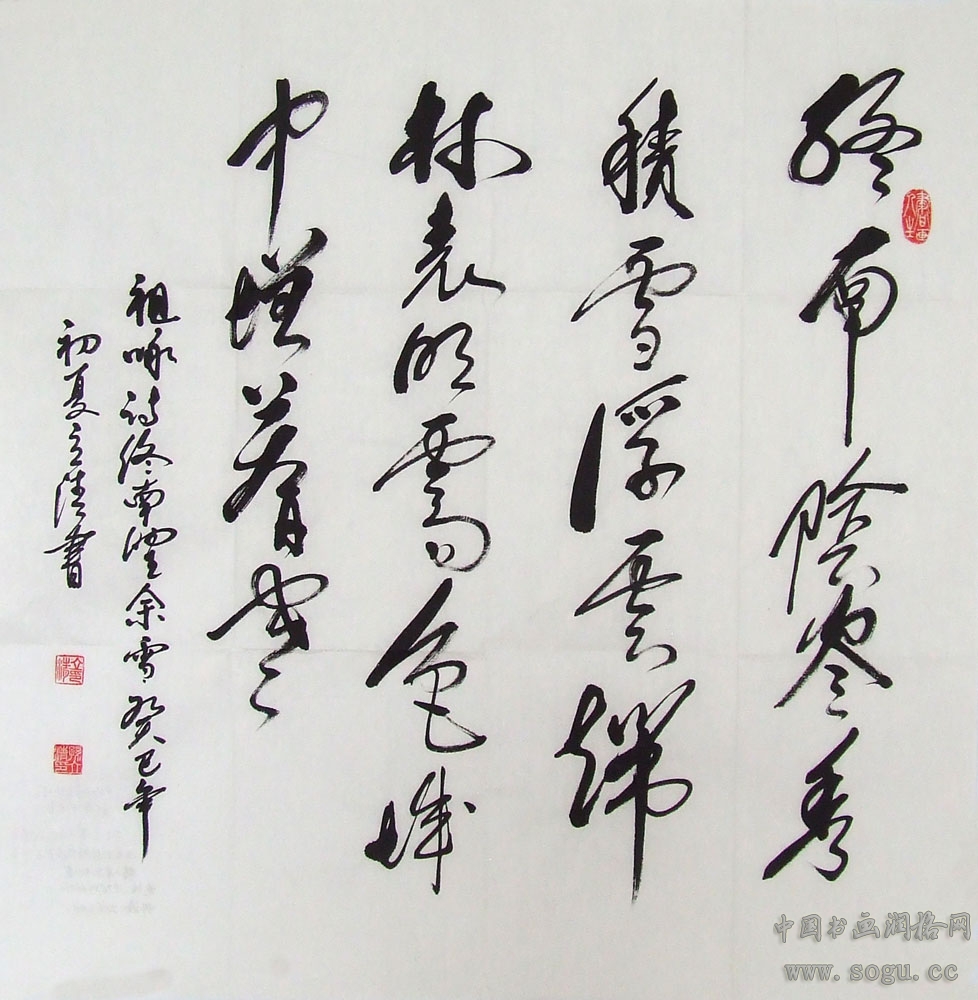 終南陰岺秀
積雪浮雲端
林表明霽色城
中增暮寒
祖咏詩终南望余雪癸巳年
初夏立清書
中国书画润格网
www.sogu.cc